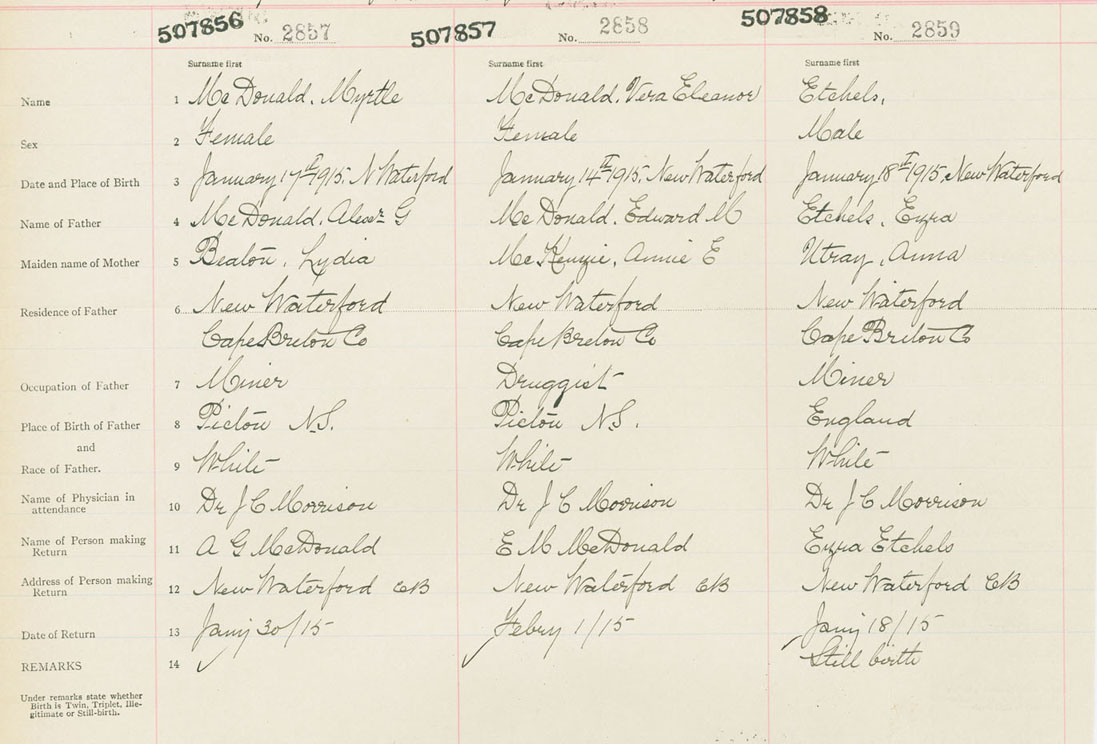 507856 No. 2857 507857 No. 2858 507858 No. 2859
Surname first Surname first Surname first
Name 1 McDonald, Myrtle McDonald, Vera Eleanor Etchels,
Sex 2 Female Female Male
Date and Place of Birth 3 January 17th 1915, N Waterford January 14th 1915, New Waterford January 18th 1915, New Waterford
Name of Father 4 McDonald, Alexr G McDonald, Edward M Etchels, Ezra
Maiden name of Mother 5 Beaton, Lydia McKenzie, Annie E Utray, Anna
Residence of Father 6 New Waterford New Waterford New Waterford
Cape Breton Co Cape Breton Co Cape Breton Co
Occupation of Father 7 Miner Druggist Miner
Place of Birth of Father 8 Pictou N.S. Pictou N.S. England
and
Race of Father. 9 White White White
Name of Physician in
attendance 10 Dr J C Morrison Dr J C Morrison Dr J C Morrison
Name of Person making
Return 11 A G McDonald E M McDonald Ezra Etchels
Address of Person making
Return 12 New Waterford CB New Waterford CB New Waterford CB
Date of Return 13 Jany 30/15 Febry 1/15 Jany 18/15
REMARKS 14 Still birth
Under remarks state whether
Birth is Twin, Triplet, Ille-
gitimate or Still-birth.